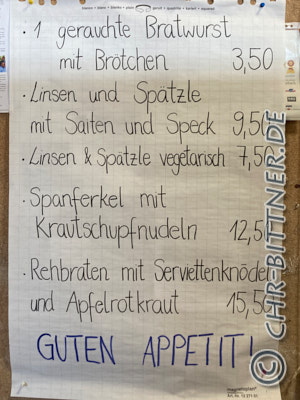 · 1 gerauchte Bratwurst
mit Brötchen 3,50
· Linsen und Spätzle
mit Saiten und Speck 9,50
· Linsen & Spätzle vegetarisch 7,50
· Spanferkel mit
Krautschupfnudeln 12,50
· Rehbraten mit Serviettenknödel
und Apfelrotkraut 15,50
GUTEN APPETIT!
© CHR-BITTNER.DE